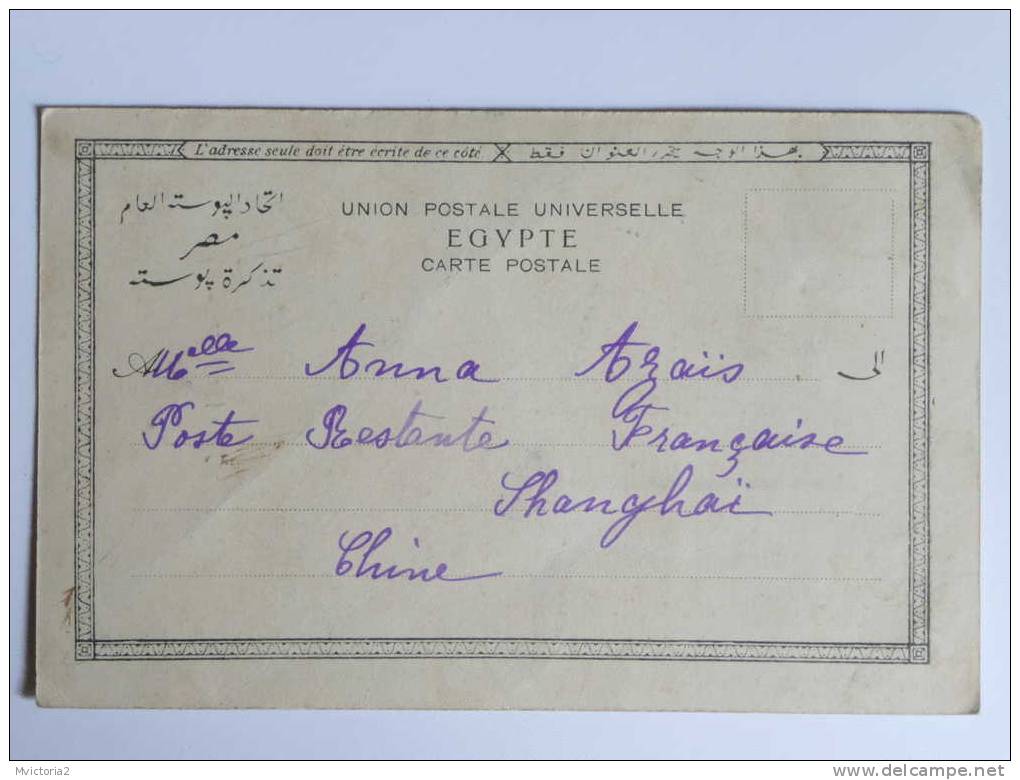 L'adresse seule doit être écrite de ce côté بهذا الوجه يحرر العنوان فقط
اتحاد الپوسته العام
مصر
تذكرة پوسته
UNION POSTALE UNIVERSELLE
EGYPTE
CARTE POSTALE
A Melle Anna Azaïs الى
Poste Restente Française
Shanghaï
Chine
Mvictoria2
delcampe.net